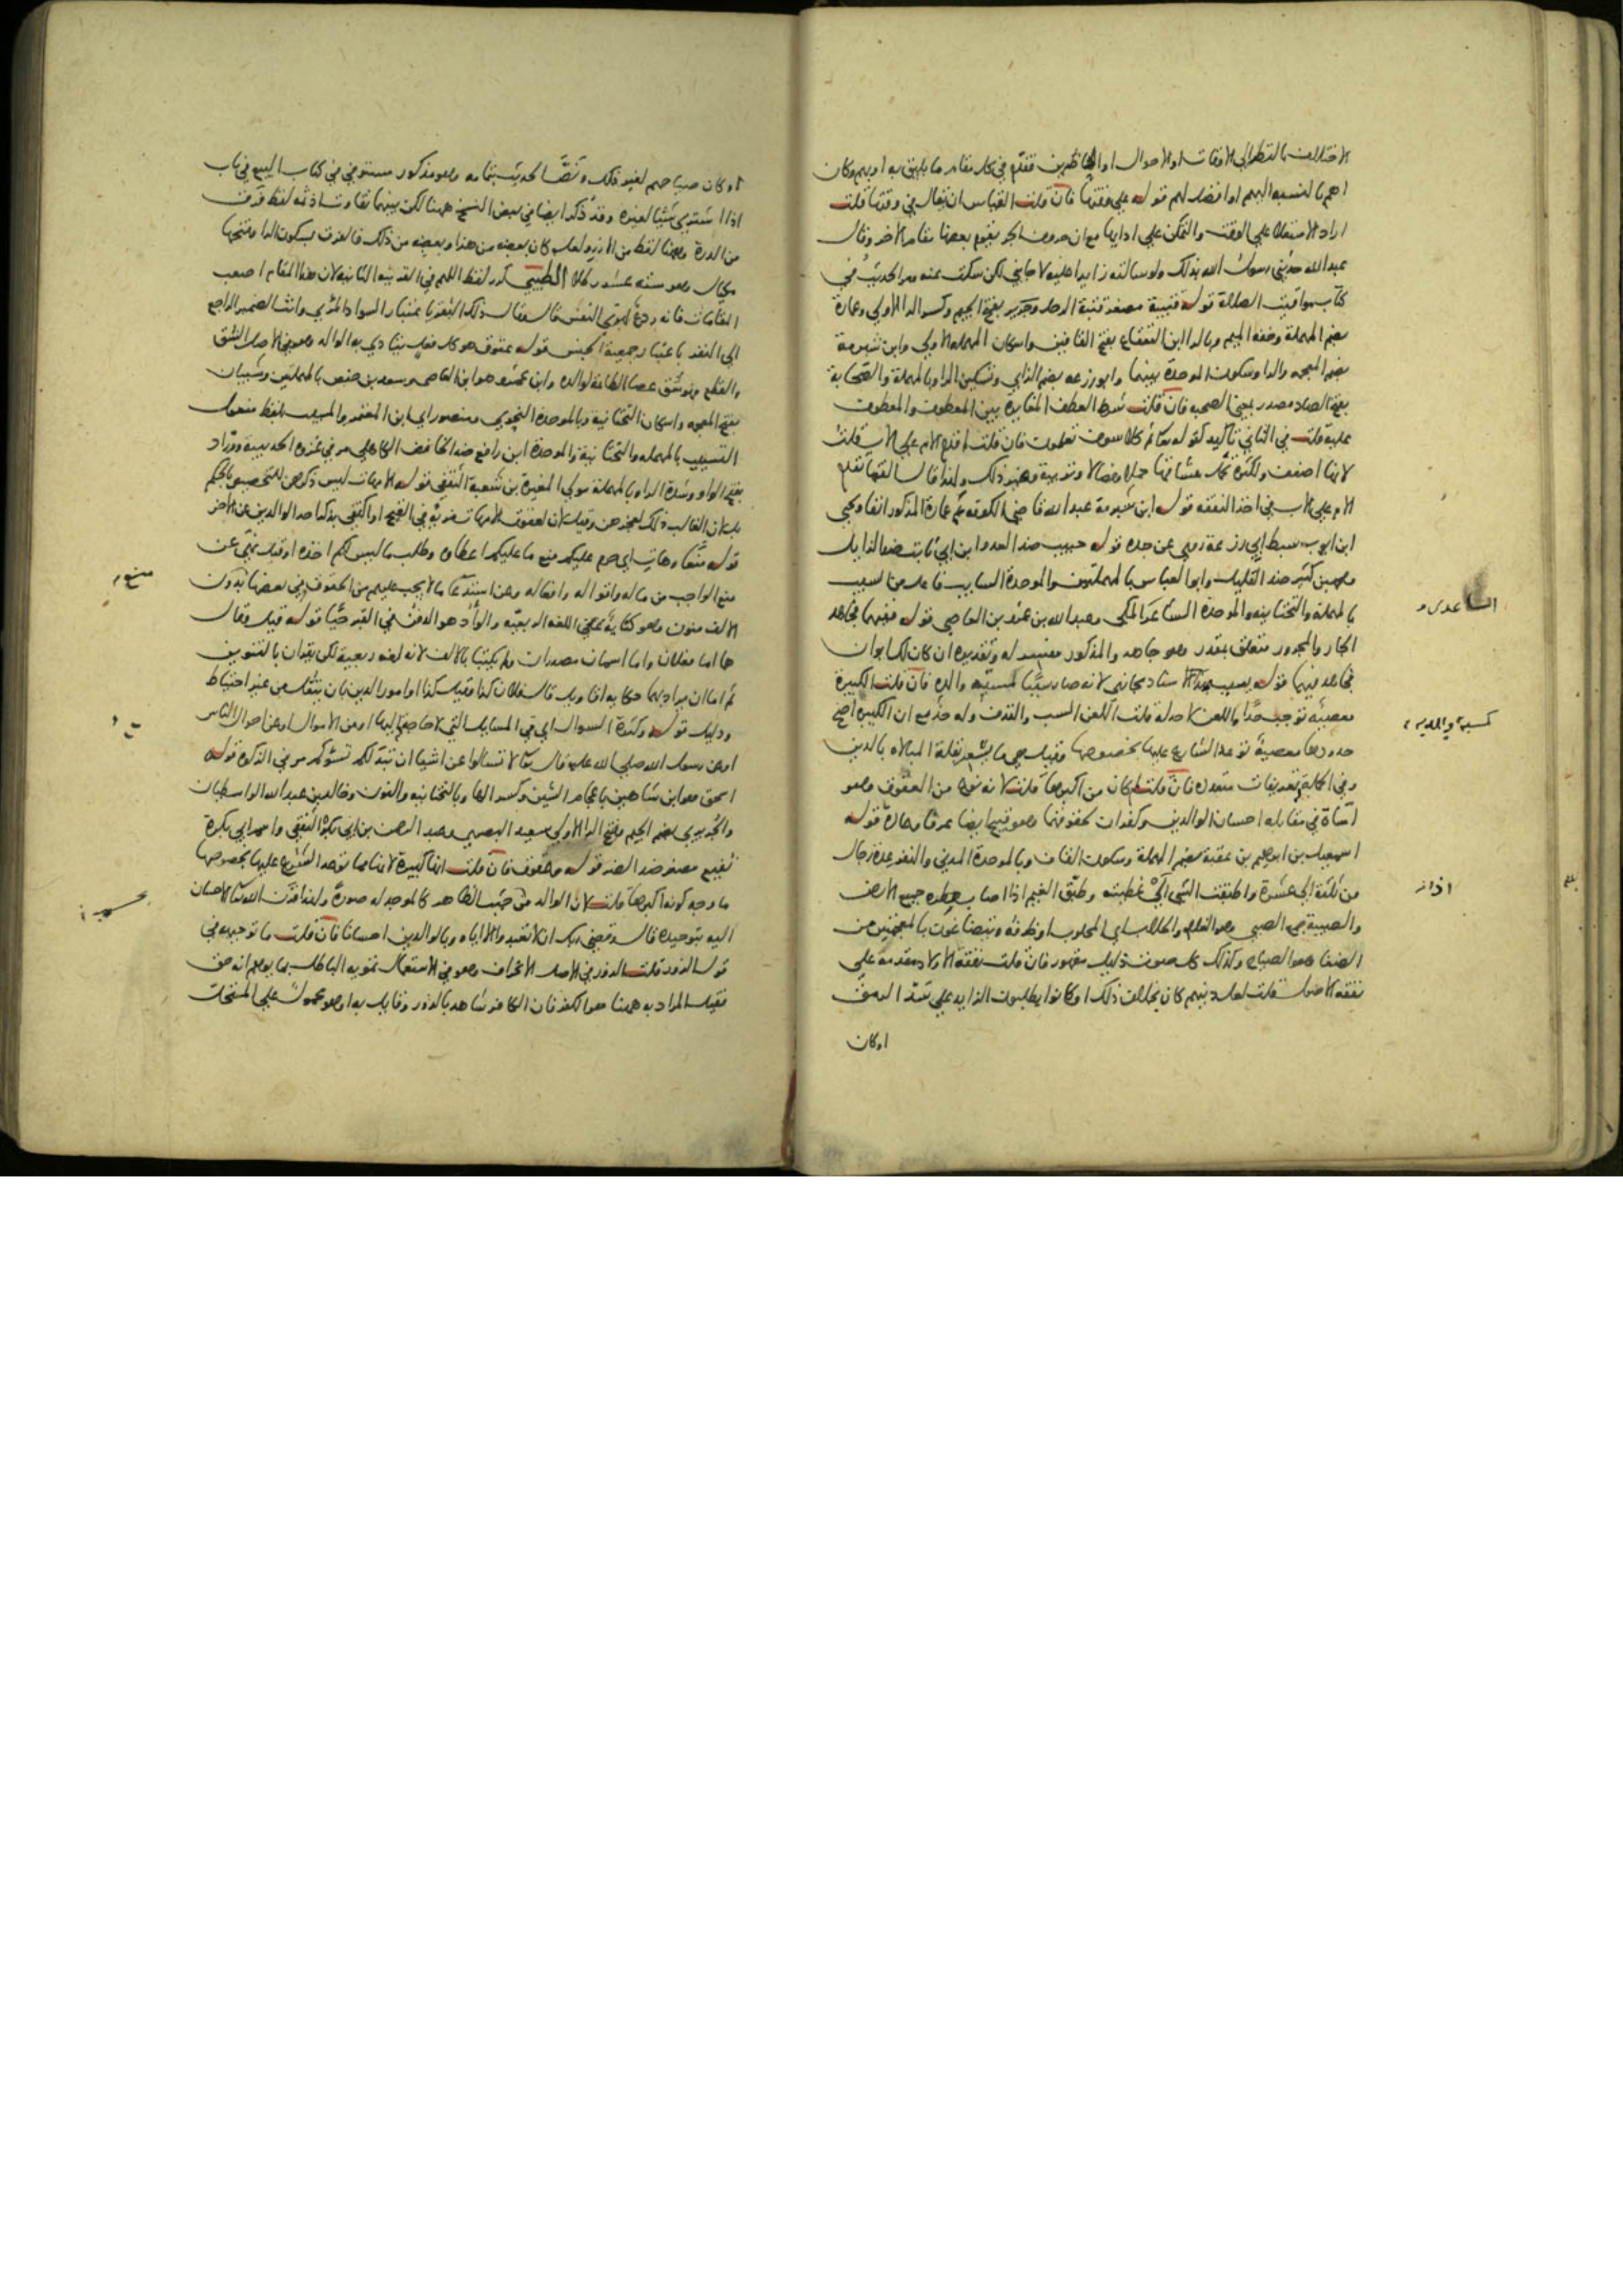 الاختلاف بالنظر الى الاوقات او الاحوال او الحاضرين فقدم في كل مقام ما يليق به او بهم وكان
اهم بالنسبة اليهم او افضل لهم قوله على وقتها فان قلت القياس ان يقال في وقتها قلت
اراد الاستعلا على الوقت والتمكن على ادايها مع ان حروف الجر يقوم بعضها مقام الاخر وقال
عبد الله حدثني رسول الله بذلك ولو سالته زايدا عليه لاجابني لكن سكت عنه ومر الحديث في
كتاب مواقيت الصلاة قوله قتيبة مصغر قتبة الرحل وجرير بفتح الجيم وكسر الرا الاولى وعمارة
بضم المهملة وخفة الميم وبالرا ابن القعقاع بفتح القافين واسكان المهملة الاولى وابن شبرمة
بضم المعجمة والرا وسكون الموحدة بينهما وابو زرعه بضم الزاي وتسكين الرا وبالمهملة والصحابة
بفتح الصاد مصدر بمعنى الصحبه فان قلت شرط العطف المغايرة بين المعطوف والمعطوف
عليه قلت في الثاني تاكيد كقوله تعالى ثم كلا سوف تعلمون فان قلت لم قدم الام على الاب قلت
لانها اضعف ولكثرة تحمل مشاقها حملا وفصالا وتربية وغير ذلك ولهذا قال الفقها تقدم
الام على الاب في اخذ النفقه قوله ابن شبرمة عبد الله قاضي الكوفه عم عمارة المذكور انفا ويحيى
ابن ايوب سبط ابي زرعة روى عن جده قوله حبيب ضد العدو ابن ابي ثابت ضد الزايل
ومحمد بن كثير ضد القليل وابو العباس بالمهملتين والموحدة السايب فاعل من السيب
بالمهملة والتحتانية والموحدة الشاعر المكي وعبد الله بن عمرو بن العاصي قوله ففيهما فجاهد
الجار والمجرور متعلق بمقدر وهو جاهد والمذكور مفسر له وتقديره ان كان لك ابوان
فجاهد فيهما قوله يسب هذا الاسناد مجازي لانه صار سببا لمسبة والده فان قلت الكبيرة
معصية توجب حدا واللعن لا حد له قلت اللعن السب والقذف وله حد مع ان الكبيرة اصح
حدودها معصية توعد الشارع عليها بخصوصها وقيل هي ما يشعر بقلة المبالاة بالدين
وفي الجملة تعريفات متعددة فان قلت لم كان من اكبرها قلت لانه نوع من العقوق وهو
اساءة في مقابله احسان الوالدين وكفران لحقوقهما وهو قبيح ايضا عرفا وعادة قوله
اسمعيل بن ابرهيم بن عقبة بضم المهملة وسكون القاف وبالموحدة المدني والنفر عدة رجال
من ثلثة الى عشرة واطبقت الشي اي غطيته وطبق الغيم اذا اصاب بمطره جميع الارض
والصبية جمع الصبي وهو الغلام والحلاب اي المحلوب او ظرفه ويتضاغون بالمعجمتين من
الضغا وهو الصياح وكذلك كل صوت ذليل مقهور فان قلت نفقة الاولاد مقدمة على
نفقة الاصول قلت لعل دينهم كان بخلاف ذلك او كانوا يطلبون الزايد على سد الرمق
او كان
اذا
او كان صياحهم لغير ذلك وتقدم الحديث بتمامه وهو مذكور مستوفى في كتاب البيع في باب
اذا اشترى شيئا لغيره وقد ذكر ايضا في بعض النسخ ههنا لكن بينهما تفاوت اذ ثمه لفظ فرق
من الذرة وههنا لفظ من الارز ولعل كان بعضه من هذا وبعضه من ذلك فالفرق بسكون الرا وفتحها
مكيال وهو ستة عشر رطلا الطيبي كرر لفظ اللهم في القرينة الثانية لان هذا المقام اصعب
المقامات فانه ردع لهوى النفس
الى البقر باعتبار جمعية الجنس قوله عقوق هو كل فعل يتاذى به الوالد وهو في الاصل الشق
والقطع فهو شق عصا الطاعة لوالده وابن عمرو هو ابن العاص وسعد بن حفص بالمهملتين وشيبان
بفتح المعجمة واسكان التحتانية وبالموحدة النحوي ومنصور اي ابن المعتمر والمسيب بلفظ مفعول
التسييب بالمهمله والتحتانية والموحدة ابن رافع ضد الخافض الكاهلي مر في غزوة الحديبية ووراد
بفتح الواو وشدة الرا وبالمهملة مولى المغيرة بن شعبة الثقفي قوله الامهات ليس ذكرهن للتخصيص بالحكم
بل لان الغالب ذلك لعجزهن وقيل لان لعقوق الامهات مزية في القبح او اكتفى بذكر احد الوالدين عن الاخر
قوله منعا وهات اي حرم عليكم منع ما عليكم اعطاؤه وطلب ما ليس لكم اخذه او قيل نهى عن
منع الواجب من ماله واقواله وافعاله وعن استدعا ما لا يجب عليهم من الحقوق وفي بعضها بدون
الالف منون وهو كتابة على اللغه الربعية والوأد هو الدفن في القبر حيا قوله قيل وقال
هما اما فعلان واما اسمان مصدران ولم يكتبا بالالف لانه لغة ربعية لكن يقران بالتنوين
ثم اما ان يراد بهما حكاية اقاويل قال فلان كذا وقيل كذا او امور الدين بان ينقل من غير احتياط
ودليل قوله وكثرة السوال اي في المسايل التي لا حاجة اليها او من الاموال او عن احوال الناس
او عن رسول الله صلى الله عليه قال تعالى لا تسالوا عن اشيا ان تبد لكم تسؤكم مر في الزكوة قوله
اسحق هو ابن شاهين باعجام الشين وكسر الها وبالتحتانية والنون وخالد بن عبد الله الواسطيان
والجريري بضم الجيم وفتح الرا الاولى سعيد البصري وعبد الرحمن بن ابي بكرة الثقفي واسم ابي بكرة
نفيع مصغر ضد الضر قوله وعقوق فان قلت انها كبيرة لانها مما توعد الشرع عليها بخصوصها
ما وجه كونه اكبرها قلت لان الوالد من حيث الظاهر كالموجد له صورة ولهذا قرن الله تعالى الاحسان
اليه بتوحيده فقال وقضى ربك ان لا تعبدوا الا اياه وبالوالدين احسانا فان قلت ما توجيهه في
قول الزور قلت الزور في الاصل الانحراف وهو في الاستعمال تمويه الباطل بما يوهم انه حق
فقيل المراد به ههنا هو الكفر فان الكافر شاهد بالزور وقايل به او هو محمول على المستحل
منع